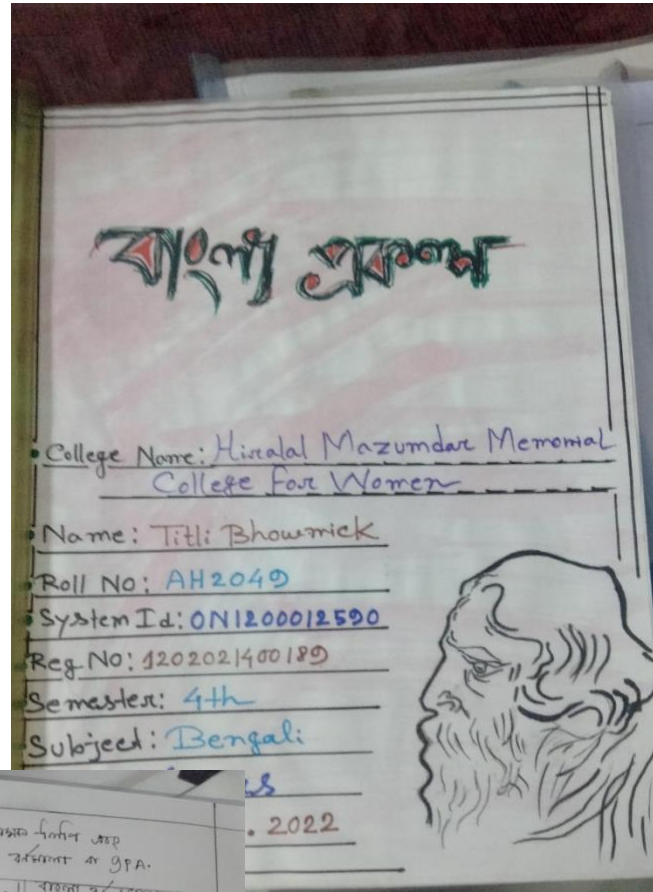 বাংলা প্রকল্প
College Name: Hiralal Mazumdar Memorial
College For Women
Name: Titli Bhowmick
Roll No: AH2049
System Id: ON1200012590
Reg No: 1202021400189
Semester: 4th
Subject: Bengali
. 2022
বর্ণমালা বা gPA.